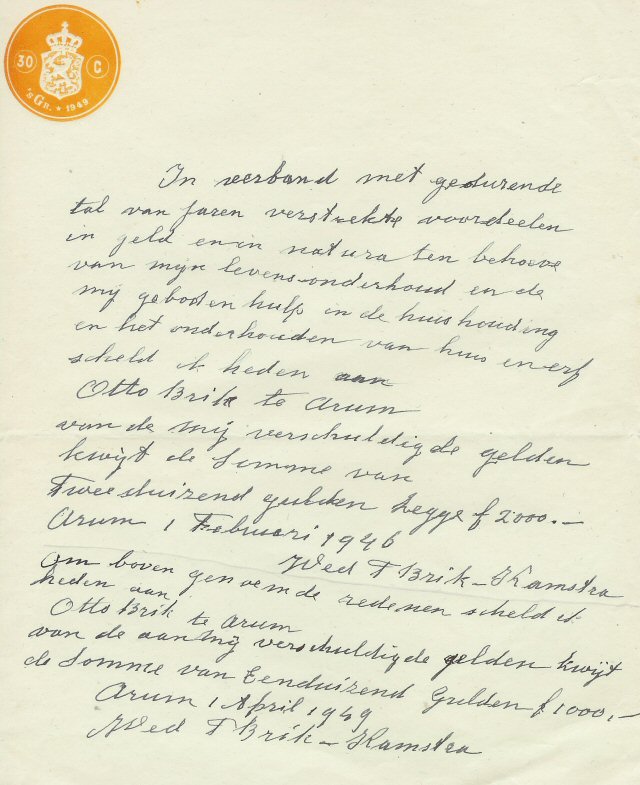 30 C
'sGR. * 1949
In verband met gedurende
tal van jaren verstrekte voordeelen
in geld en in natura ten behoeve
van mijn levens-onderhoud en de
mij geboden hulp in de huishouding
en het onderhouden van huis en erf
scheld ik heden aan
Otto Brik te Arum
van de mij verschuldigde gelden
kwijt de Somme van
Tweeduizend gulden zegge f 2000.-
Arum 1 Februari 1946
Wed T Brik-Kamstra
Om boven genoemde redenen scheld ik
heden aan
Otto Brik te Arum
van de aan mij verschuldigde gelden kwijt
de Somme van Eenduizend Gulden f 1000,-
Arum 1 April 1949
Wed T Brik-Kamstra